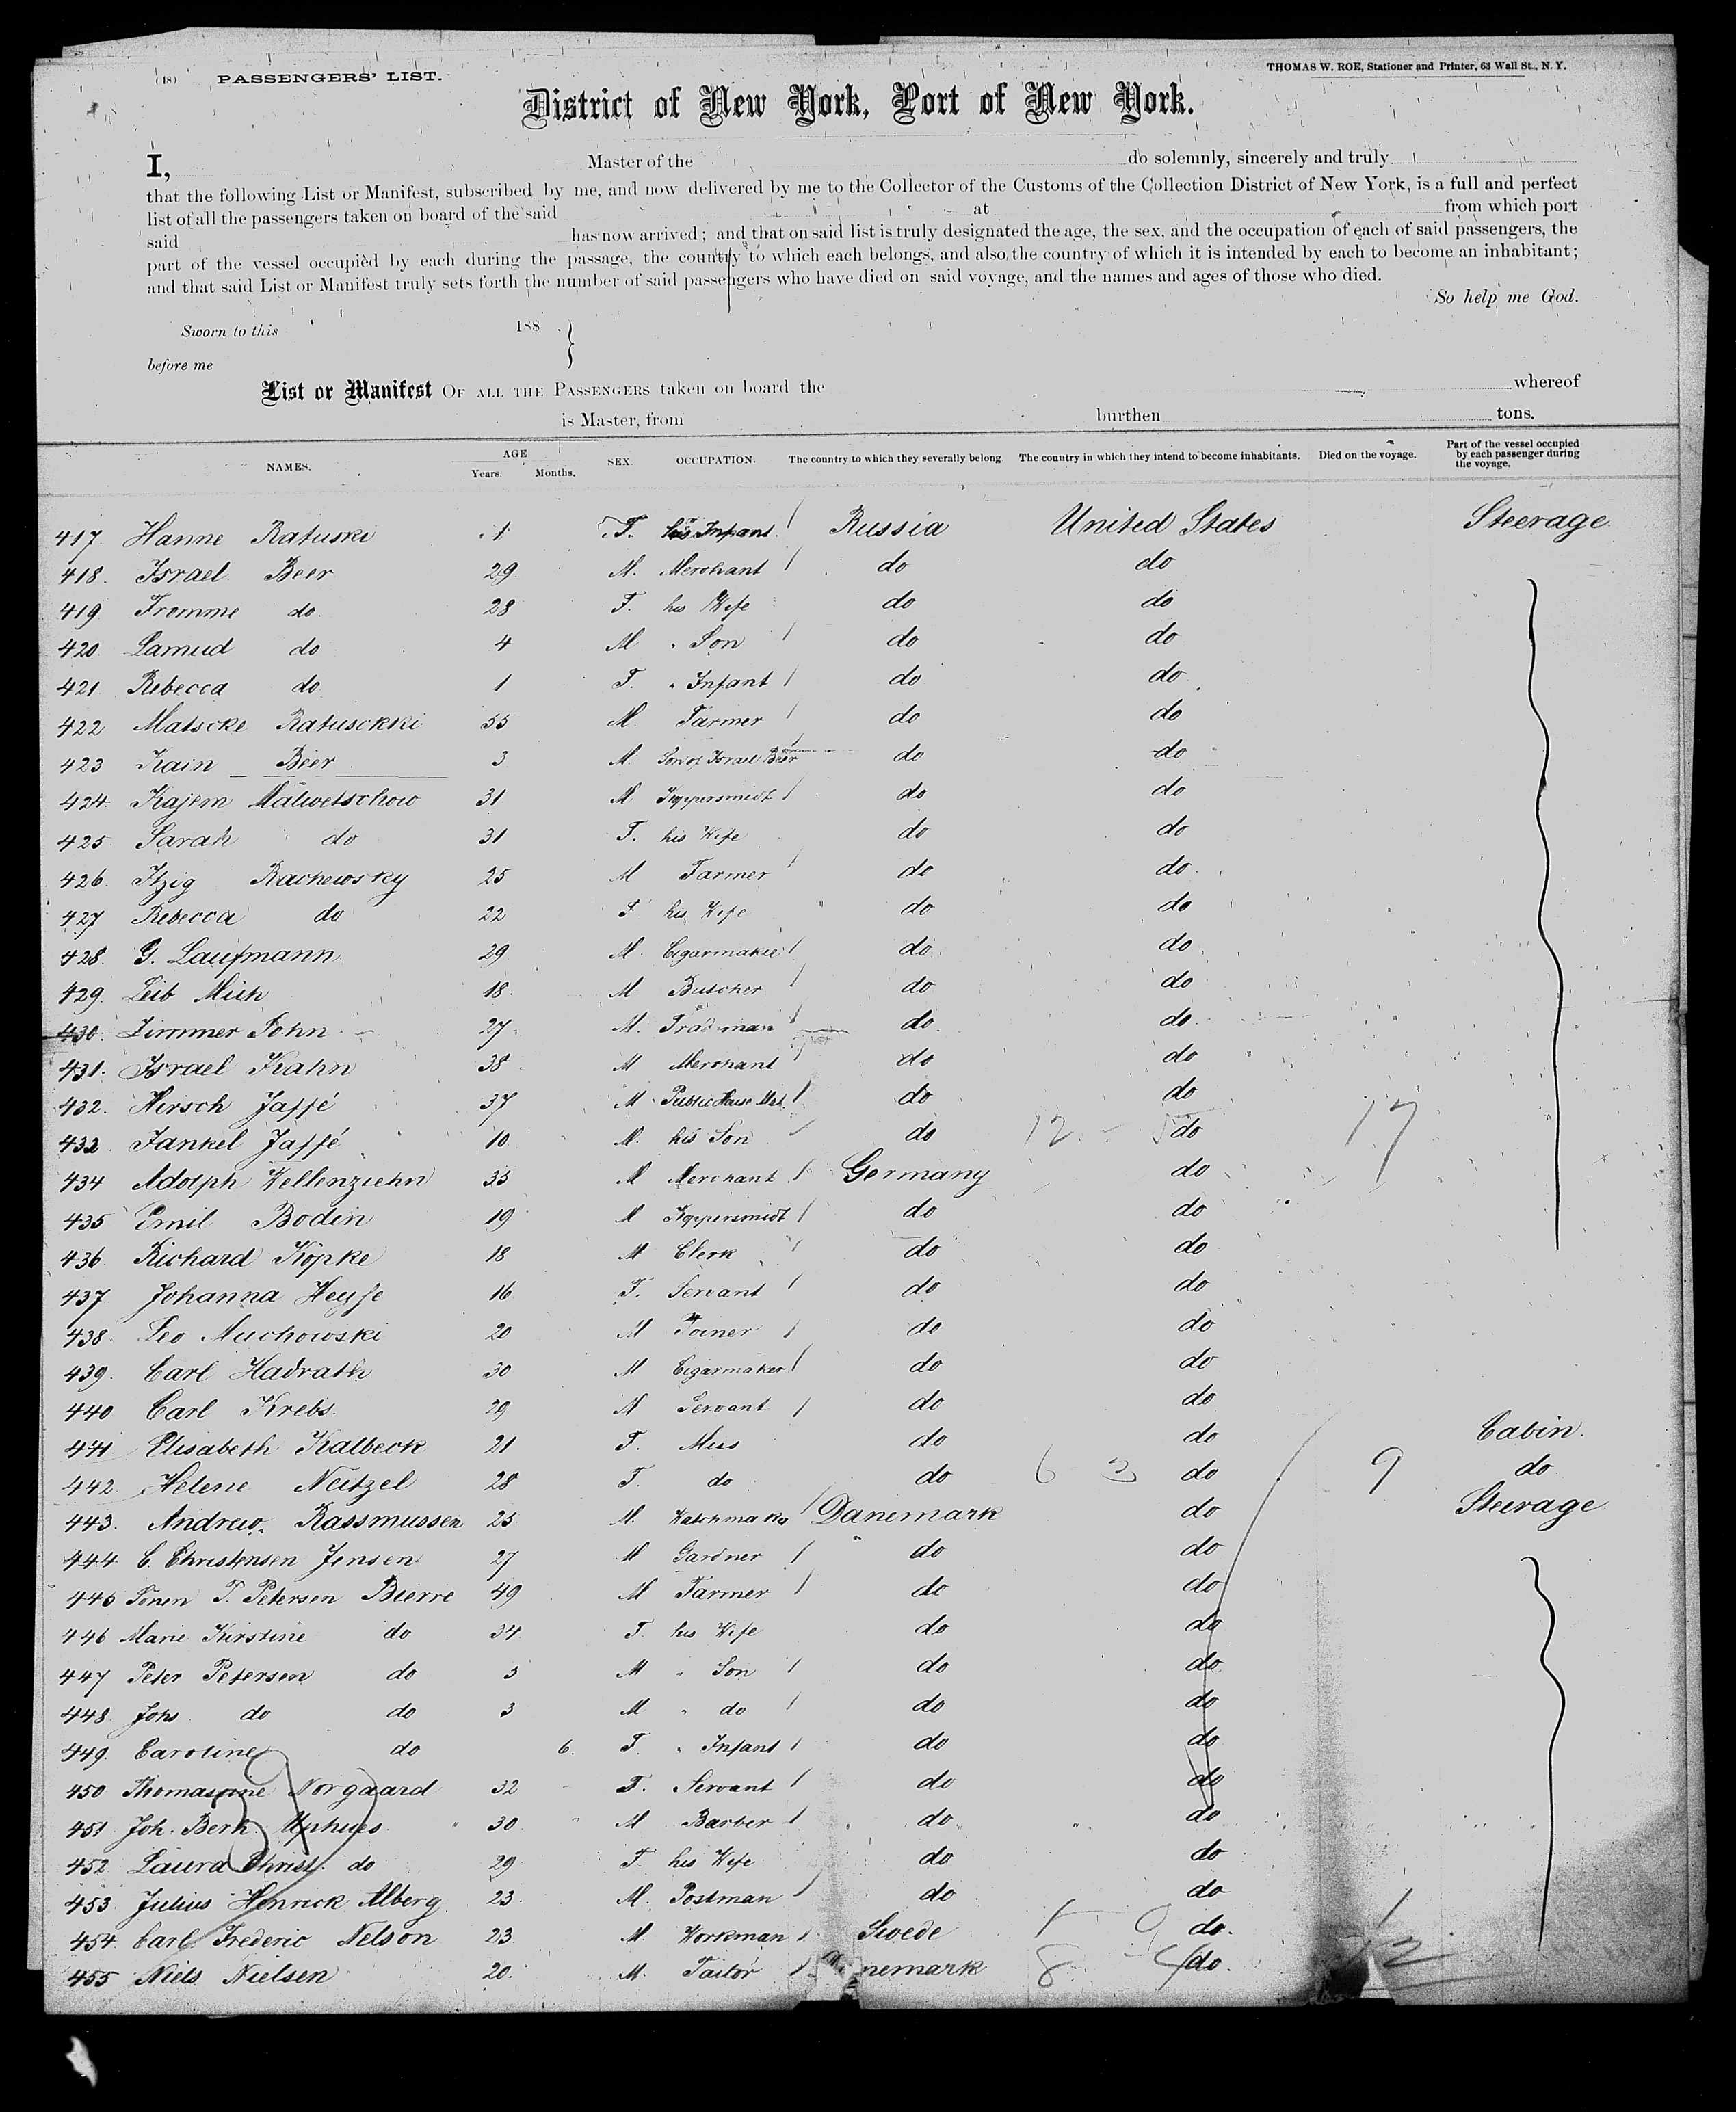 (18) PASSENGERS' LIST. THOMAS W. ROE, Stationer and Printer, 63 Wall St., N. Y.
District of New York, Port of New York.
I, Master of the do solemnly, sincerely and truly
that the following List or Manifest, subscribed by me, and now delivered by me to the Collector of the Customs of the Collection District of New York, is a full and perfect
list of all the passengers taken on board of the said at from which port
said has now arrived; and that on said list is truly designated the age, the sex, and the occupation of each of said passengers, the
part of the vessel occupied by each during the passage, the country to which each belongs, and also the country of which it is intended by each to become an inhabitant;
and that said List or Manifest truly sets forth the number of said passengers who have died on said voyage, and the names and ages of those who died.
So help me God.
Sworn to this 188
before me
List or Manifest OF ALL THE PASSENGERS taken on board the whereof
is Master, from burthen tons.
NAMES. AGE Years. Months. SEX. OCCUPATION. The country to which they severally belong. The country in which they intend to become inhabitants. Died on the voyage. Part of the vessel occupied by each passenger during the voyage.
417 Hanne Ratuski 1 F. his Infant Russia United States Steerage
418. Israel Beer 29 M. Merchant do do
419 Fromme do. 28 F. his Wife do do
420 Samud do 4 M " Son do do
421 Rebecca do 1 F. " Infant do do
422 Matscke Ratusckki 55 M. Farmer do do
423 Kain Beer 3 M. Son of Israel Beer do do
424 Kajem Malwetschow 31 M Kuppersmidt do do
425 Sarah do 31 F. his Wife do do
426 Itzig Rachewsky 25 M Farmer do do
427 Rebecca do 22 F his Wife do do
428 G. Laufmann 29 M. Cigarmaker do do
429. Leib Mich 18 M Butcher do do
430. Zimmer John 27 M. Tradsman do do
431. Israel Kahn 38 M Merchant do do
432. Hirsch Jaffé 37 M Public House do do
432 Jankel Jaffé 10 M. his Son do 12 5 do 17
434 Adolph Wellenziehn 35 M Merchant Germany do
435 Emil Boden 19 M Kuppersmidt do do
436 Richard Köpke 18 M Clerk do do
437 Johanna Heyse 16 F. Servant do do
438 Leo Muchowski 20 M Joiner do do
439. Carl Hadrath 30 M Cigarmaker do do
440 Carl Krebs. 29 M Servant do do
441 Elisabeth Kalbeck 21 F. Miss do do Cabin.
442 Helene Neitzel 28 F. do do 6 3 do 9 do
443. Andrew Rassmussen 25 M. Watchmaker Danemark do Steerage
444 C. Christensen Jensen 27 M Gardner do do
445 P. Petersen Bierre 49 M Farmer do do
446 Marie Kirstine do 34 F. his Wife do do
447 Peter Petersen do 5 M " Son do do
448 Johs do do 3 M " do do do
449. Caroline do 6. F. " Infant do do
450 Thomasine Norgaard 32 F. Servant do do
451 Joh. Berh. Uphues 30 M Barber do do
452 Laura Christ. do 29 F. his Wife do do
453 Julius Henrick Alberg 23. M. Postman do do
454 Carl Frederic Nelson 23 M. Workman Swede 1 0 do. 1
455 Niels Nielsen 20. M. Tailor nemark 8 4 do. 12